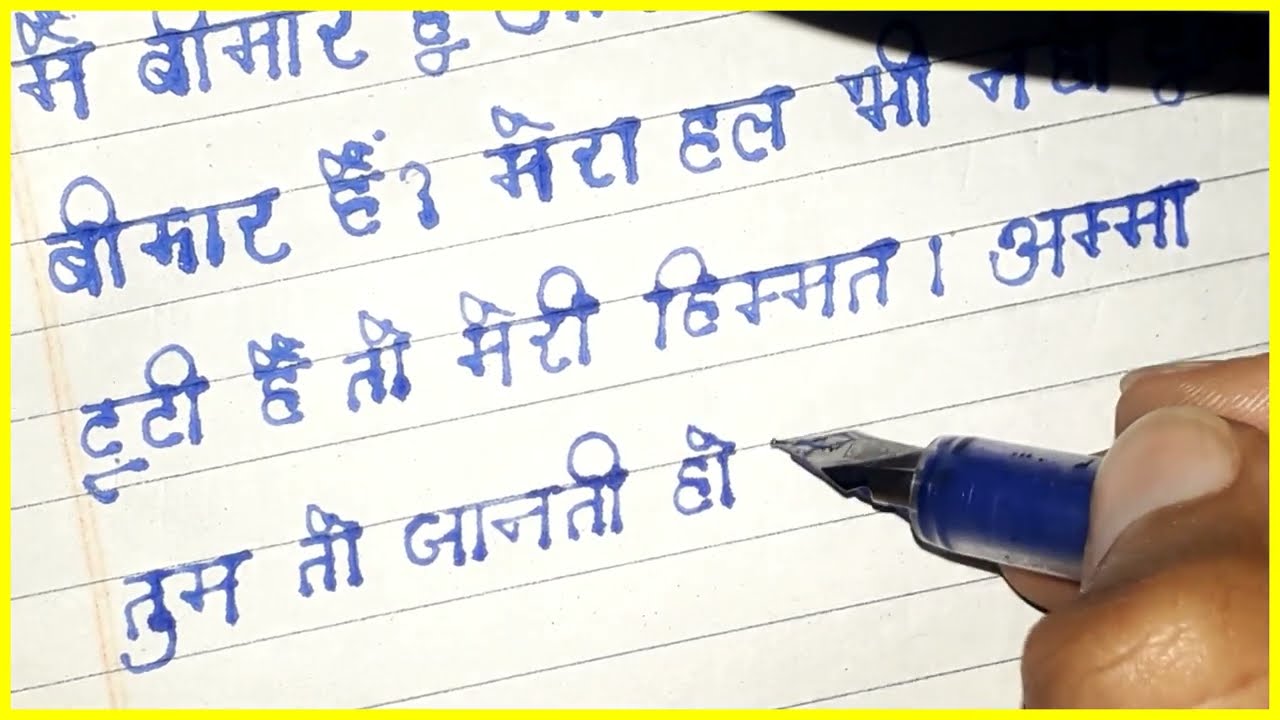 मैं बीमार हूँ
बीमार हैं? मेरा हल भी नहीं
टूटी हैं तो मेरी हिम्मत। अम्मा
तुम तो जानती हो